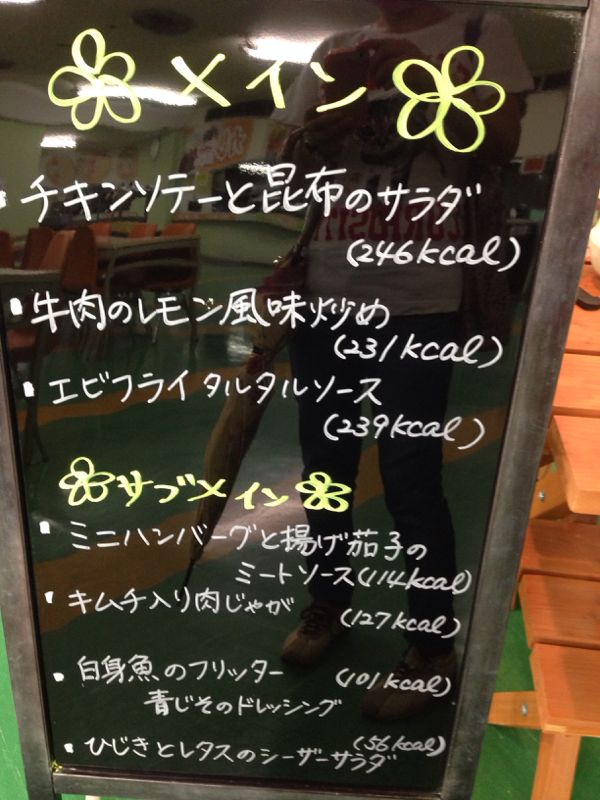 メイン
・チキンソテーと昆布のサラダ
(246kcal)
・牛肉のレモン風味炒め
(231kcal)
・エビフライタルタルソース
(239kcal)
サブメイン
・ミニハンバーグと揚げ茄子の
ミートソース(114kcal)
・キムチ入り肉じゃが (127kcal)
・白身魚のフリッター (101kcal)
青じそのドレッシング
(56kcal)
・ひじきとレタスのシーザーサラダ